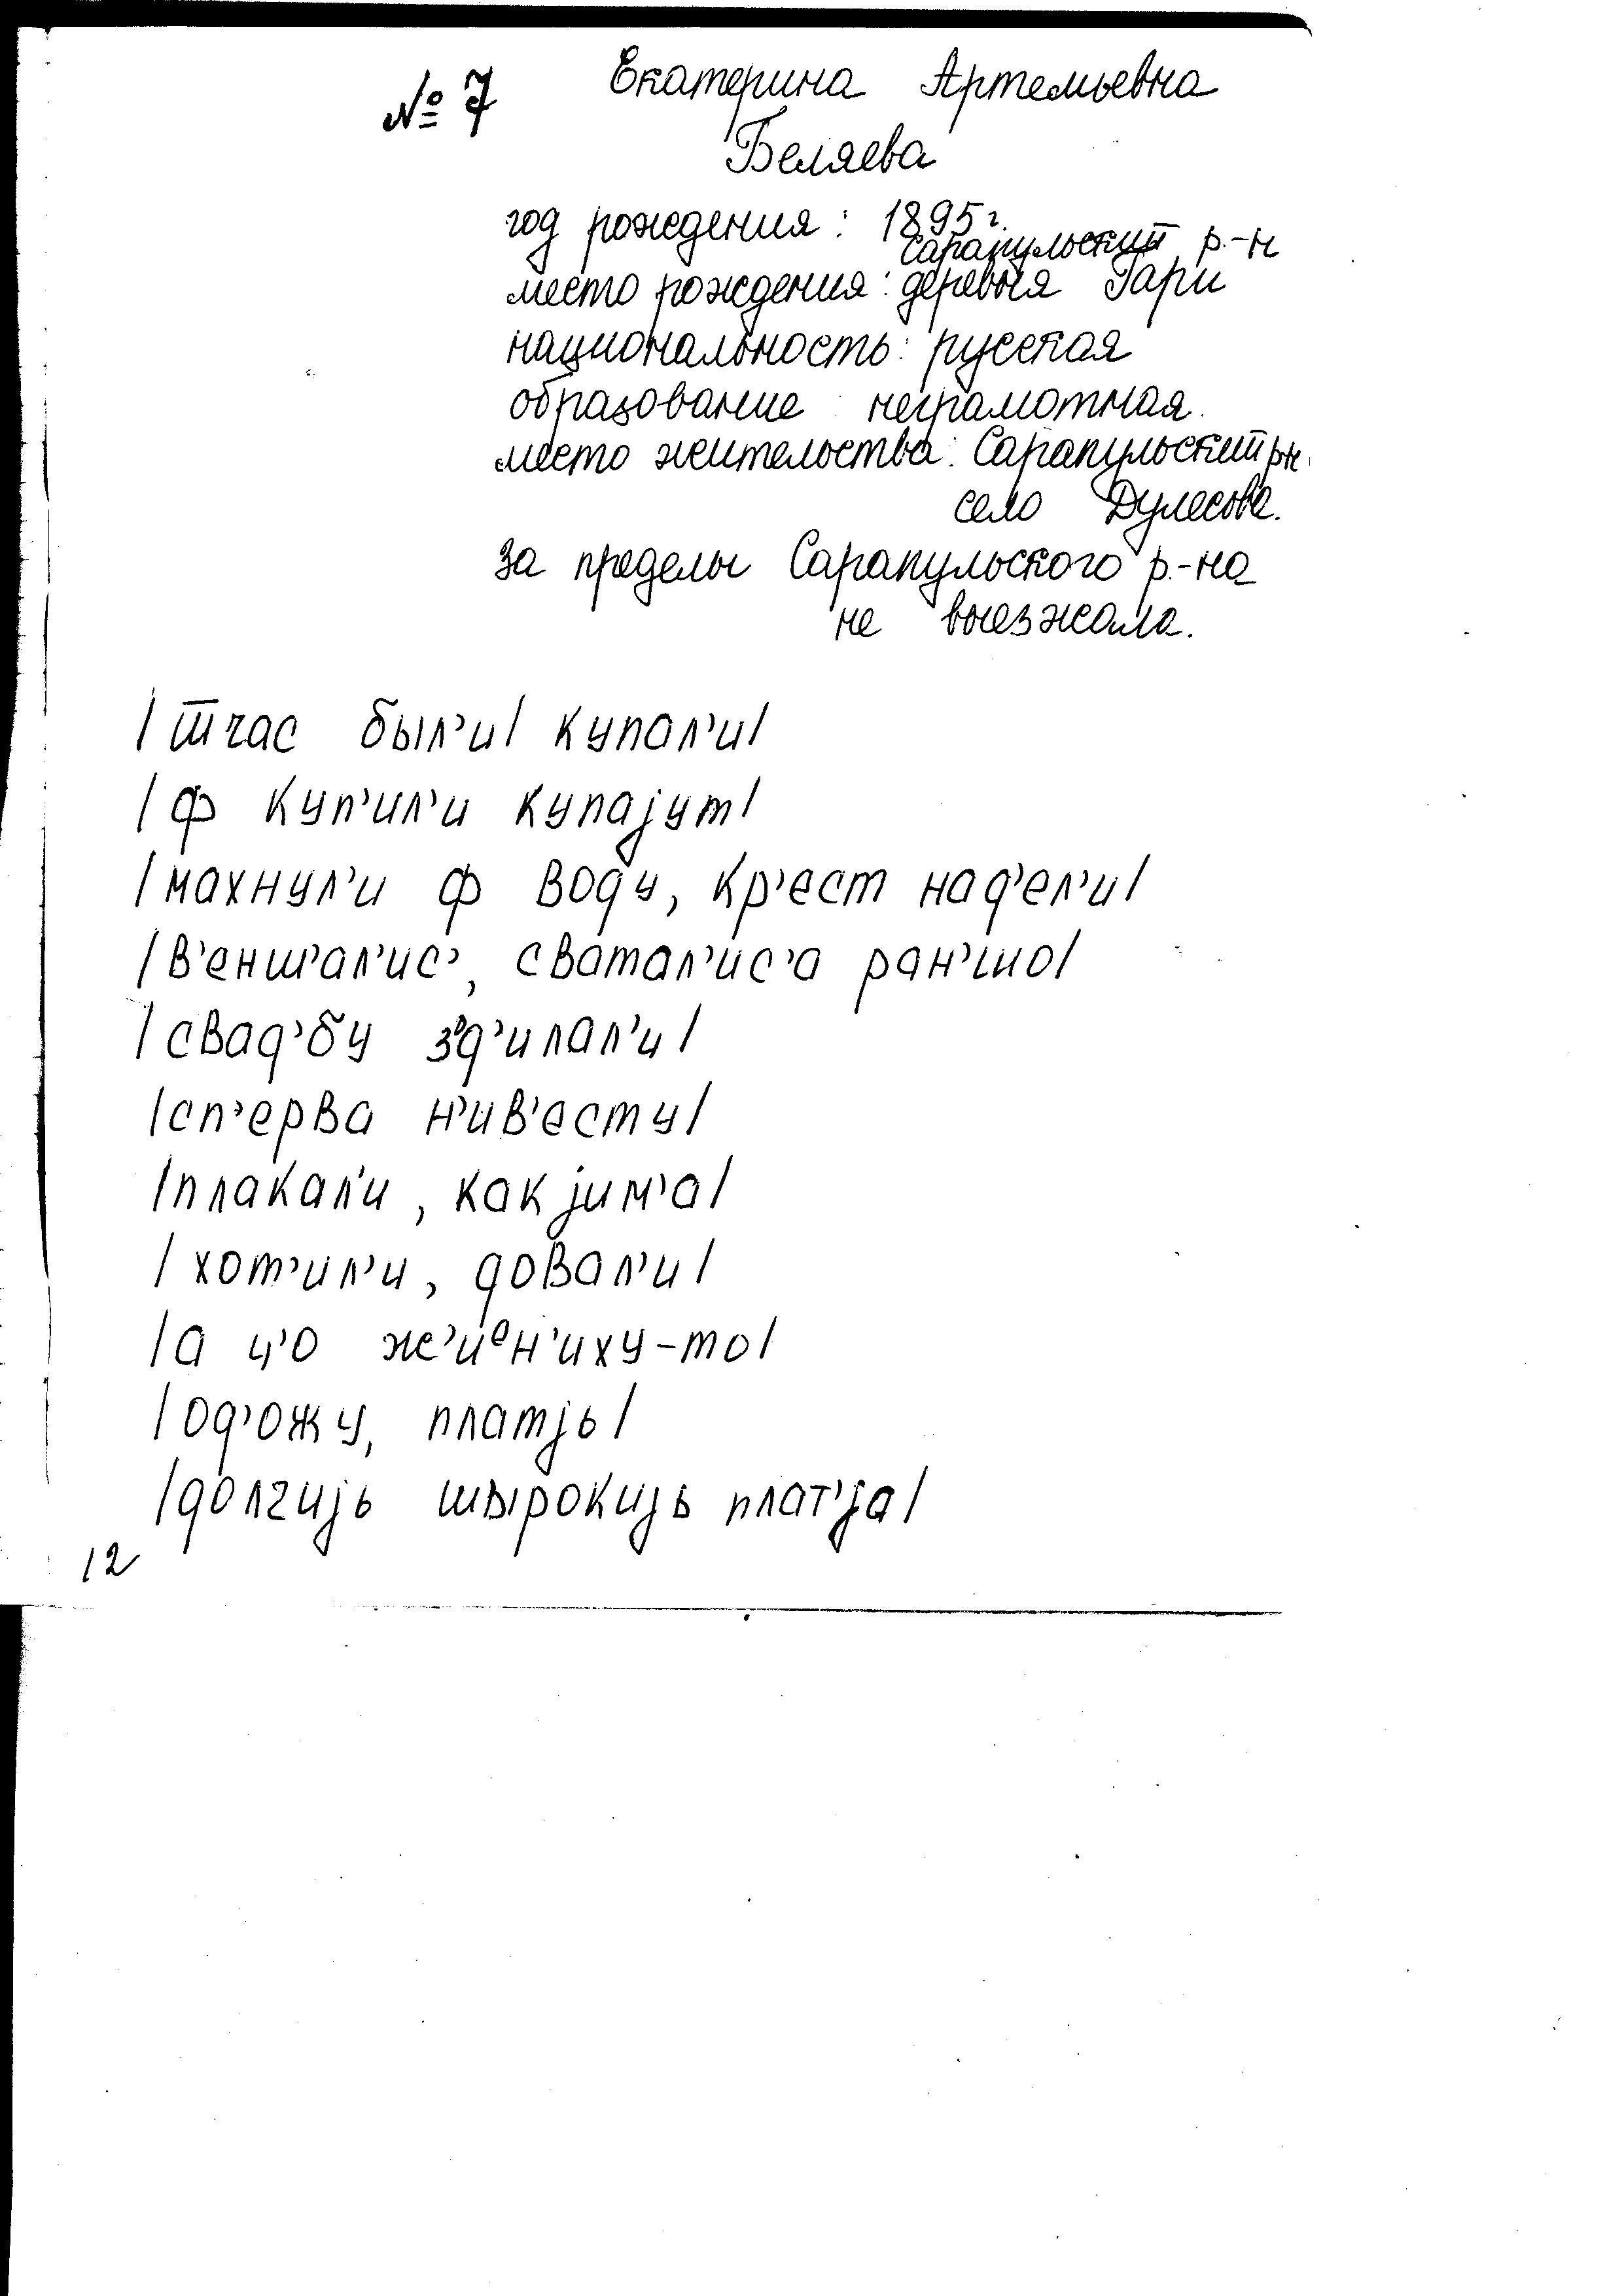 № 7 Екатерина Артемьевна
Беляева
год рождения: 1895 г.
Сарапульский р.-н
место рождения: деревня Гари
национальность: русская
образование неграмотная.
место жительства: Сарапульский р-н.
село Дулесова.
за пределы Сарапульского р.-на
не выезжала.
/тчас был’и/ купал’и/
/ф куп’ил’и купаjут/
/махнул’и ф воду, кр’ест над’ел’и/
/в’енш’ал’ис’, сватал’ис’а ран’шо/
/свад’бу з’д’илал’и/
/сп’ерва н’ив’есту/
/плакал’и, как jим’а/
/хот’ил’и, довал’и/
/а ц’о ж’иᵉн’иху-то/
/од’ожу, платjь/
/долгиjь шырокиjь плат’jа/
12